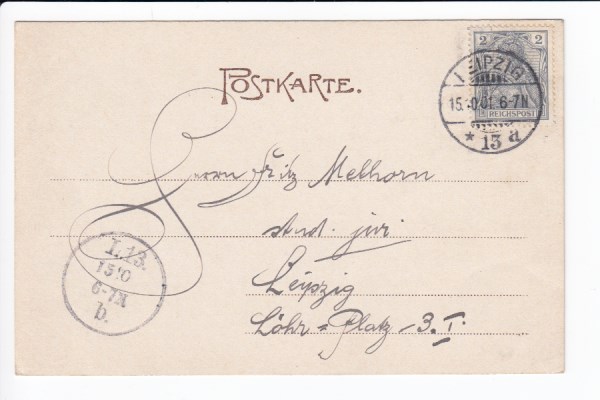 POSTKARTE.
2 2
REICHSPOST
LEIPZIG
15.10.01. 6-7N
* 13 a
Herrn Fritz Melhorn
stud. jur.
Leipzig
Löhr=Platz-3.I.
I.13.
15/10
6-7N
b.